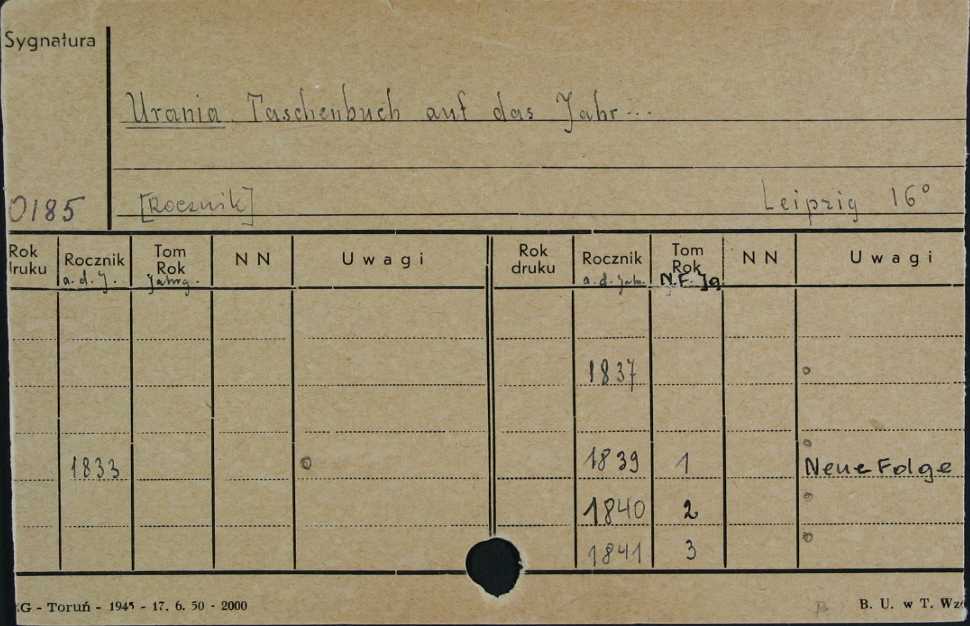 Sygnatura
Urania. Taschenbuch auf das Jahr...
0185 [Rocznik] Leipzig 16°
Rok druku Rocznik a.d.J. Tom Rok Jahrg. NN Uwagi Rok druku Rocznik a.d. Jahr. Tom Rok N.F. Jg. NN Uwagi
1837
1833 1839 1 Neue Folge
1840 2
1841 3
G - Toruń - 1945 - 17. 6. 50 - 2000 B. U. w T. Wzó